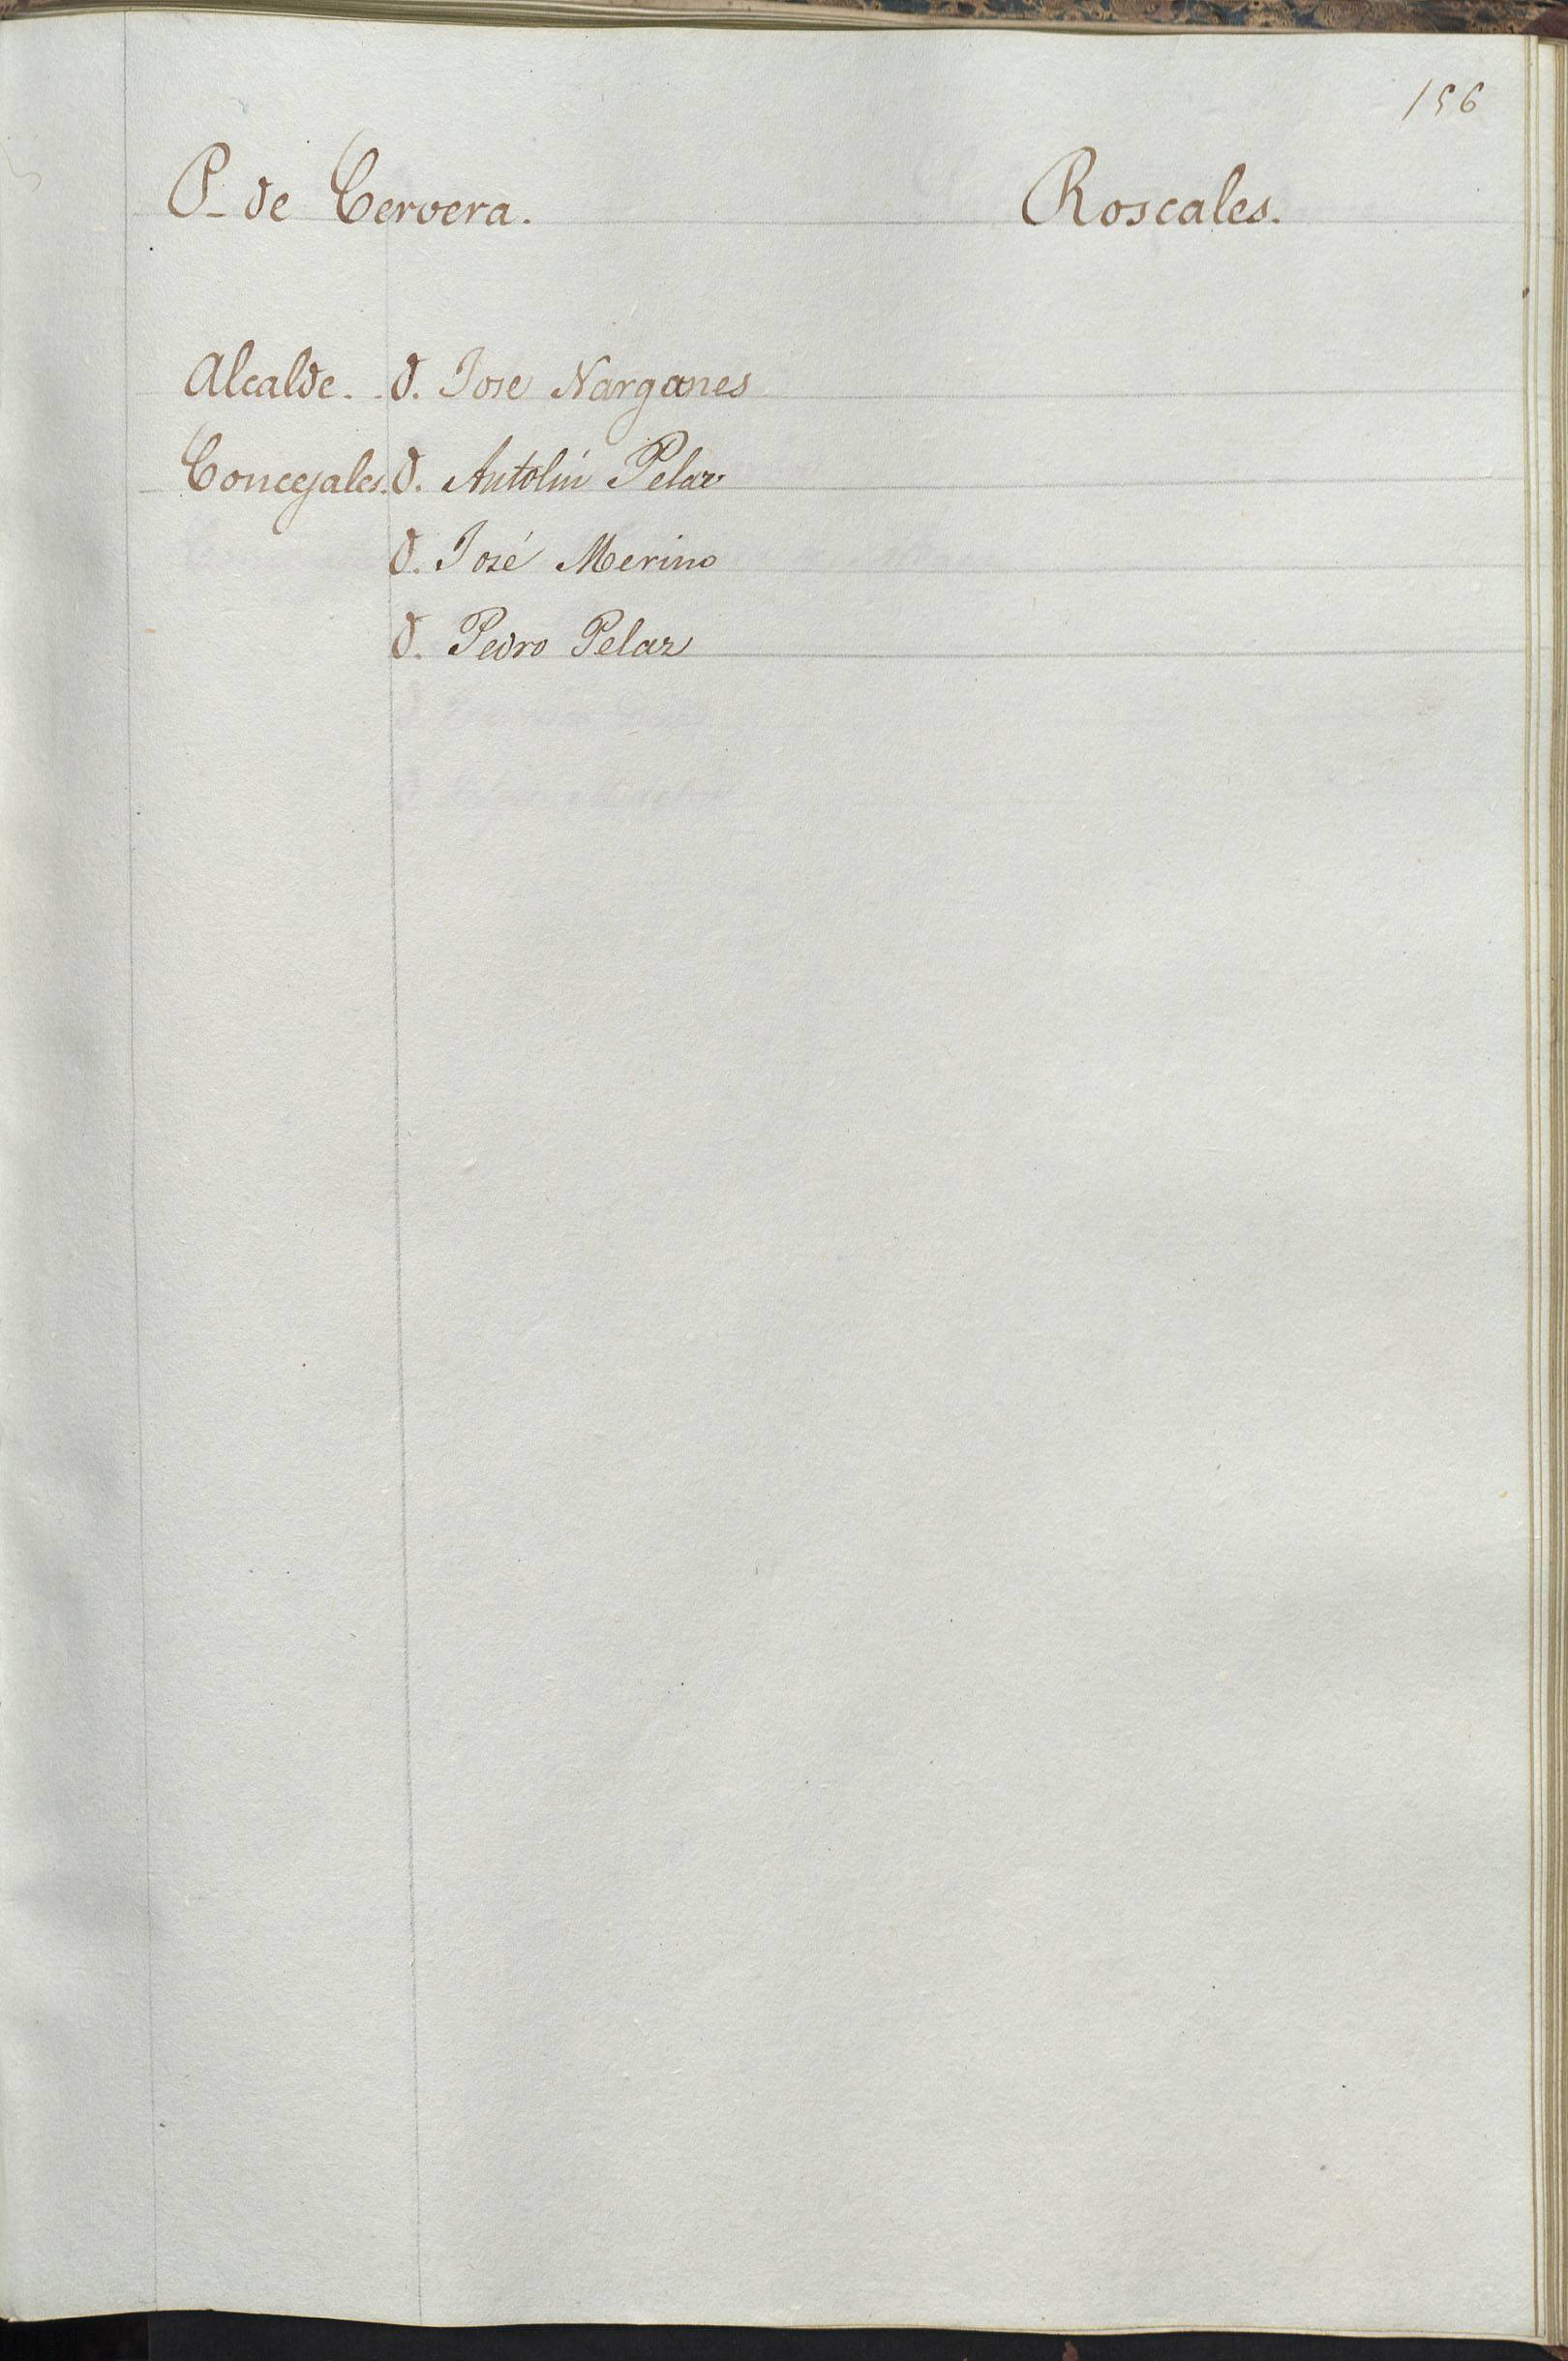 156
P. de Cervera. Roscales.
Alcalde. . D. Jose Narganes
Concejales. D. Antolín Pelaz
D. José Merino
D. Pedro Pelaz